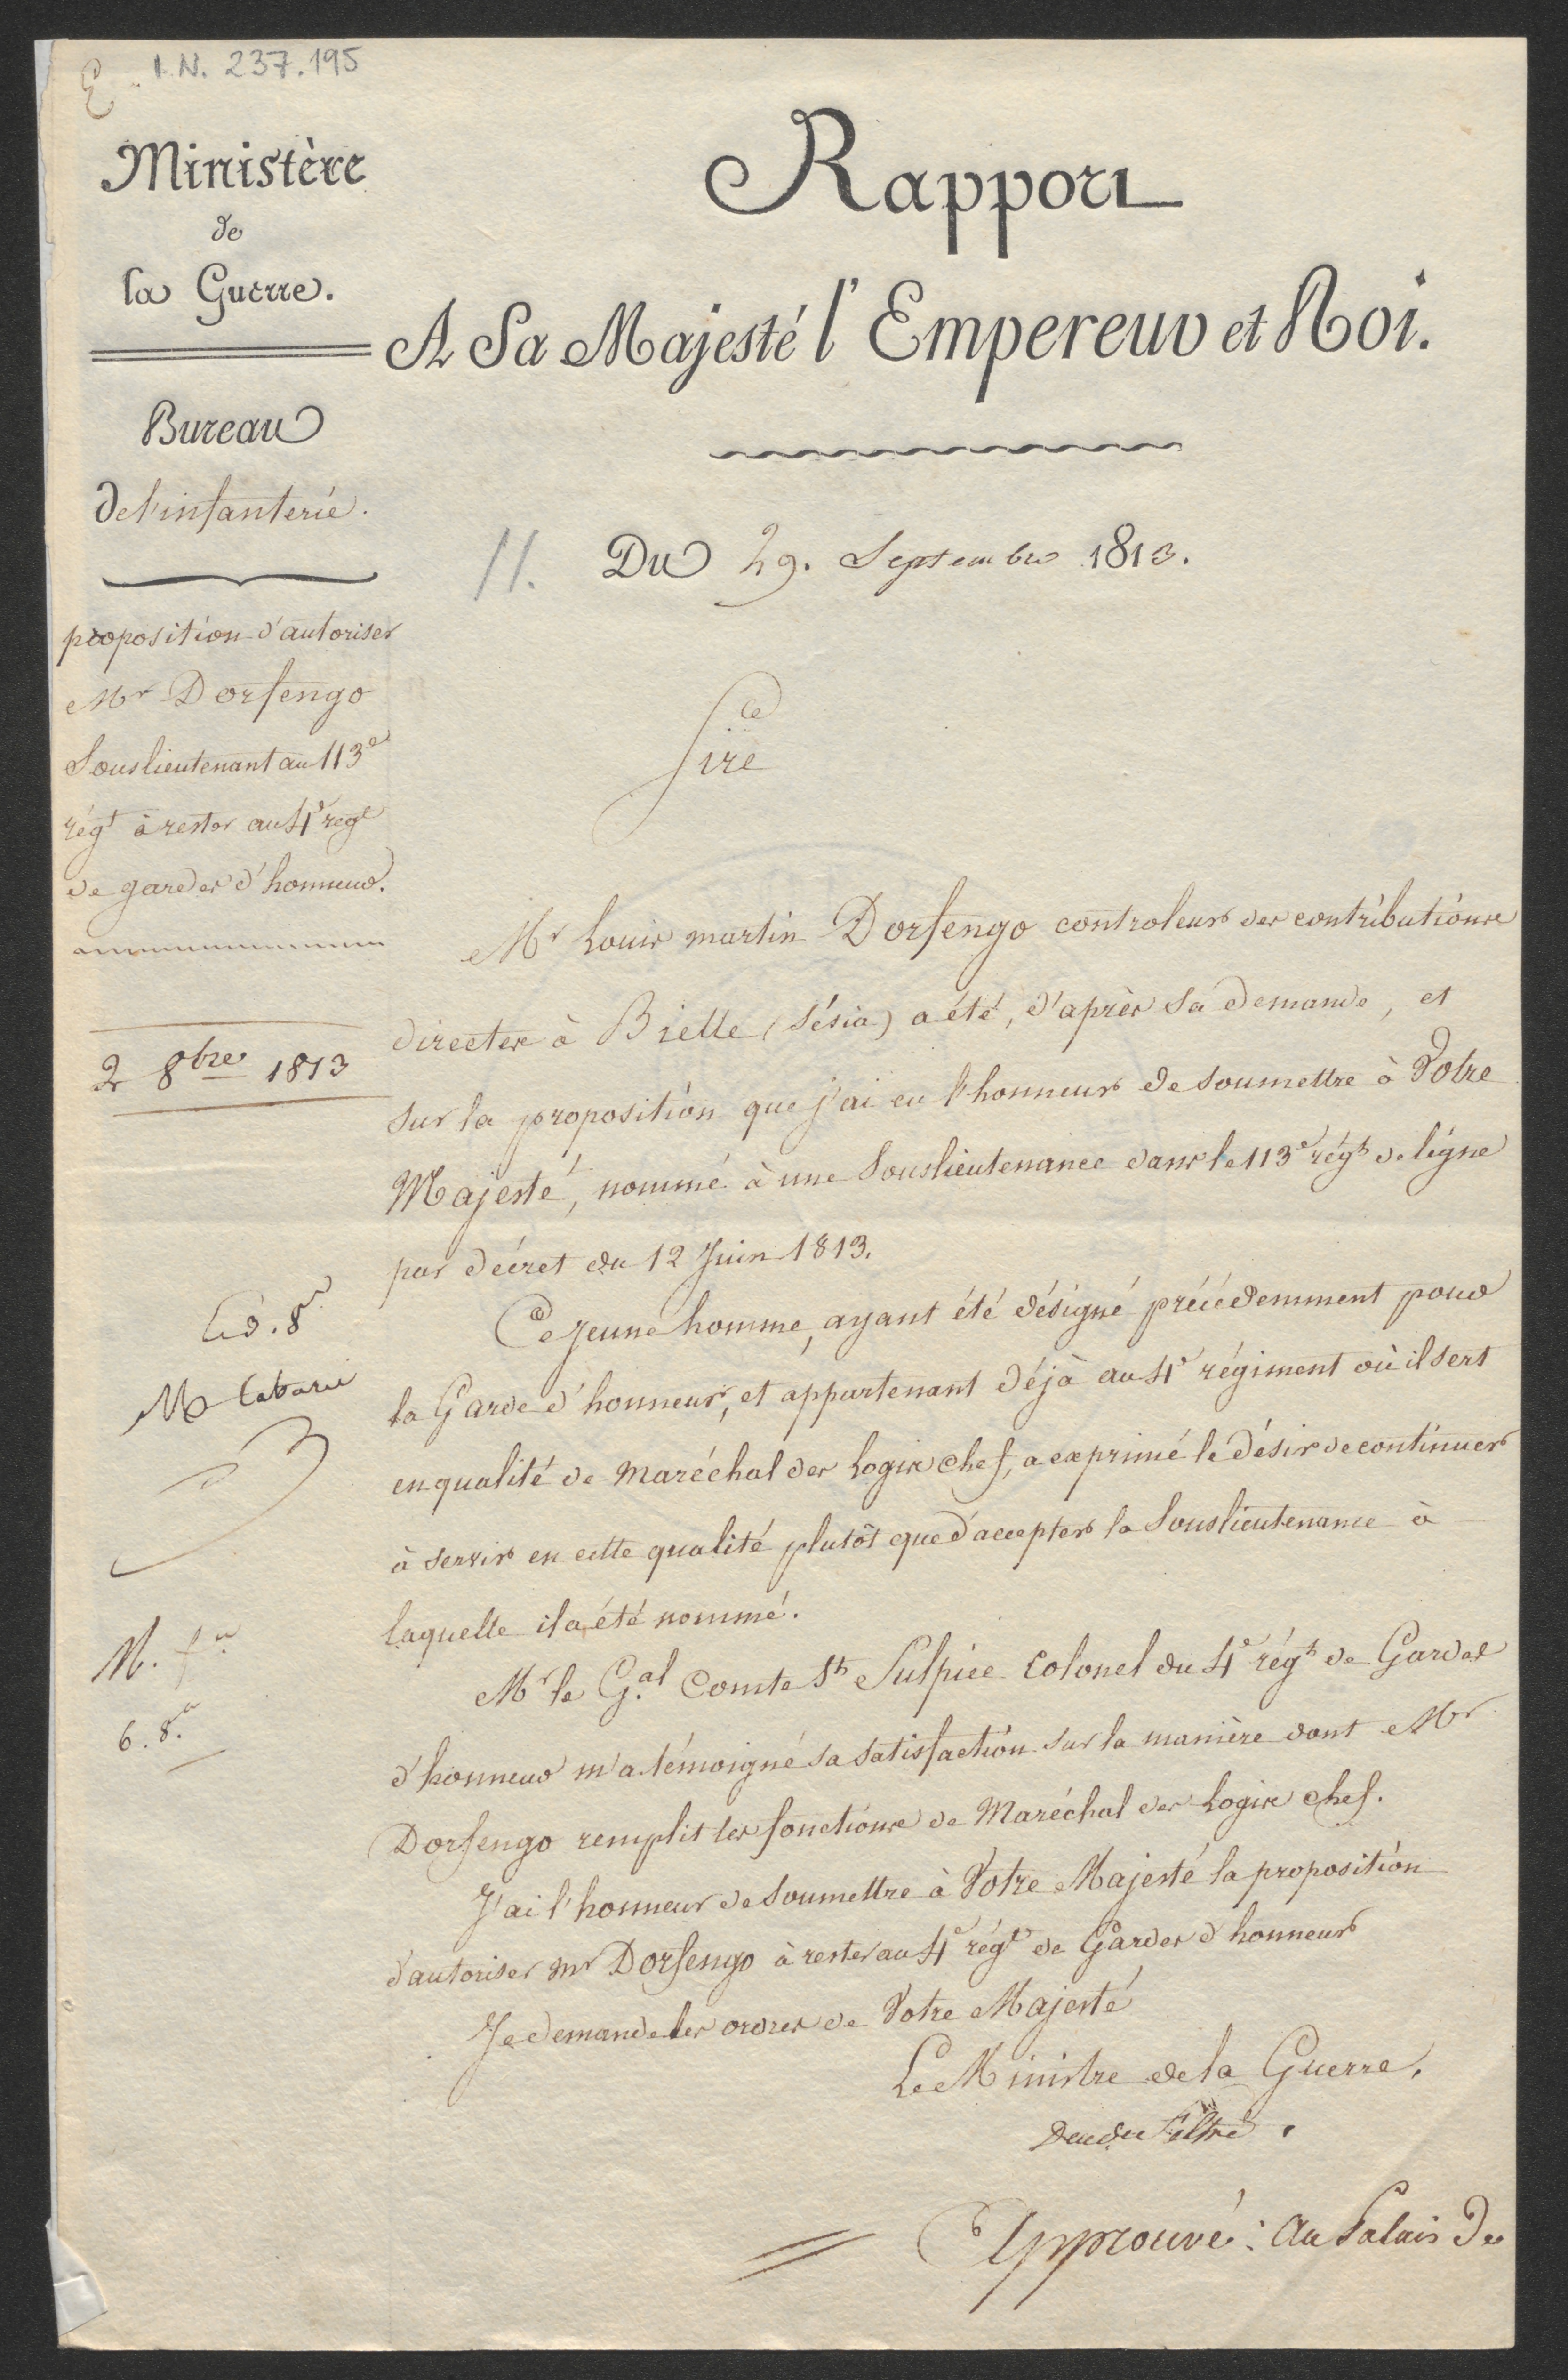 E I.N. 237.195
Ministère
de
la Guerre.
Bureau
de l'infanterie.
proposition d'autoriser
Mr Dorfengo
Souslieutenant au 113e
régt à rester au 4e régt
de gardes d'honneur.
2 8bre 1813
Rapport
A Sa Majesté l'Empereur et Roi.
11. Du 29. Septembre 1813.
Sire
Mr Louis martin Dorfengo controleur des contributions
directes à Bielle (Sésia) a été, d'après sa demande, et
sur la proposition que j'ai eu l'honneur de soumettre à Votre
Majesté, nommé à une Souslieutenance dans le 113e régt de ligne
par décret du 12 Juin 1813.
Ce jeune homme, ayant été désigné précédemment pour
la Garde d'honneur, et appartenant déjà au 4e régiment où il sert
en qualité de Maréchal des Logis chef, a exprimé le désir de continuer
à servir en cette qualité plutôt que d'accepter la Souslieutenance à
laquelle il a été nommé.
Mr le Gal Comte St Sulpice Colonel du 4e régt de Gardes
d'honneur m'a témoigné sa satisfaction sur la manière dont Mr
Dorfengo remplit les fonctions de Maréchal des Logis chef.
J'ai l'honneur de soumettre à Votre Majesté la proposition
d'autoriser mr Dorfengo à rester au 4e régt de Gardes d'honneur
Je demande les ordres de Votre Majesté
Le Ministre de la Guerre.
Duc de Feltre.
Approuvé : Au Palais de
6. 8.